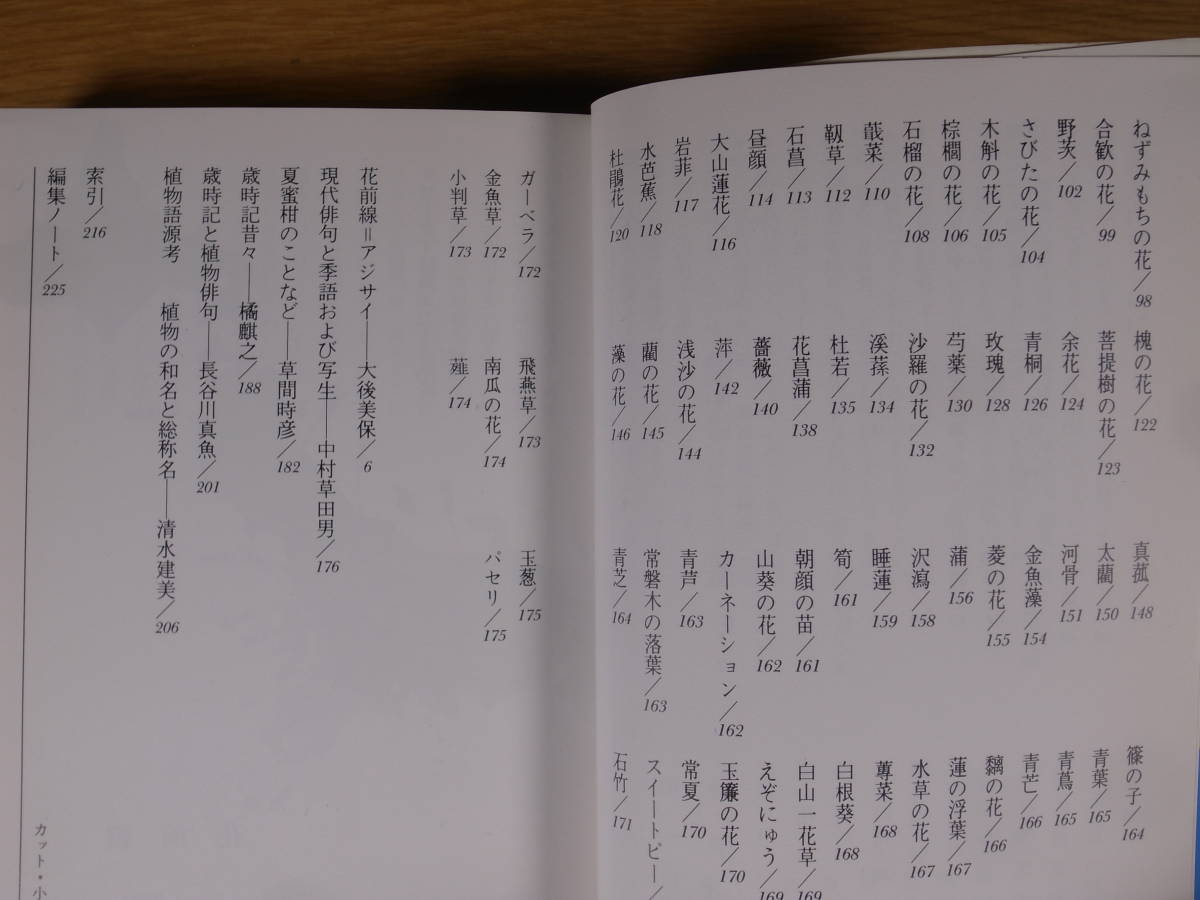 ねずみもちの花／98
合歓の花／99
野茨／102
さびたの花／104
木斛の花／105
棕櫚の花／106
石榴の花／108
蕺菜／110
靱草／112
石菖／113
昼顔／114
大山蓮花／116
岩菲／117
水芭蕉／118
杜鵑花／120
槐の花／122
菩提樹の花／123
余花／124
青桐／126
玫瑰／128
芍薬／130
沙羅の花／132
溪蓀／134
杜若／135
花菖蒲／138
薔薇／140
萍／142
浅沙の花／144
藺の花／145
藻の花／146
真菰／148
太藺／150
河骨／151
金魚藻／154
菱の花／155
蒲／156
沢瀉／158
睡蓮／159
筍／161
朝顔の苗／161
山葵の花／162
カーネーション／162
青芦／163
常磐木の落葉／163
青芝／164
篠の子／164
青葉／165
青蔦／165
青芒／166
黐の花／166
蓮の浮葉／167
水草の花／167
蓴菜／168
白根葵／168
白山一花草／169
えぞにゅう／169
玉簾の花／170
常夏／170
スイートピー／
石竹／171
ガーベラ／172
金魚草／172
小判草／173
飛燕草／173
南瓜の花／174
薤／174
玉葱／175
パセリ／175
花前線＝アジサイ――大後美保／6
現代俳句と季語および写生――中村草田男／176
夏蜜柑のことなど――草間時彦／182
歳時記昔々――橘麒之／188
歳時記と植物俳句――長谷川真魚／201
植物語源考　植物の和名と総称名――清水建美／206
索引／216
編集ノート／225
カット・小